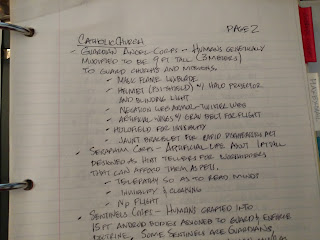 PAGE 2
CATHOLIC CHURCH
- GUARDIAN ANGEL CORPS - HUMANS GENETICALLY
MODIFIED TO BE 9 FT TALL (3 METERS)
TO GUARD CHURCHES AND MISSIONS.
MASK FLAME W/BLADE
HELMET (PSI-SHIELD) W/ HALO PROJECTOR
AND BLINDING LIGHT
NEGATION WEB ARMOR
ARTIFICIAL WINGS W/ GRAV BELT FOR FLIGHT
HOLOFIELD FOR INVISIBILITY
JAUNT BRACELET FOR RAPID
- SERAPHIM CORPS - ARTIFICIAL LIFE ABOUT 1 FT TALL
DESIGNED AS HELP FOR WORSHIPPERS
THAT CAN AFFORD THEM AS PETS.
TELEPATHY SO AS TO READ MINDS
INVISIBILITY &
NO FLIGHT
- SENTINELS CORPS - HUMANS GRAFTED INTO
15 FT ANDROID BODIES ASSIGNED TO GUARD & ENFORCE
DOCTRINE. SOME SENTINELS ARE GUARDIANS,